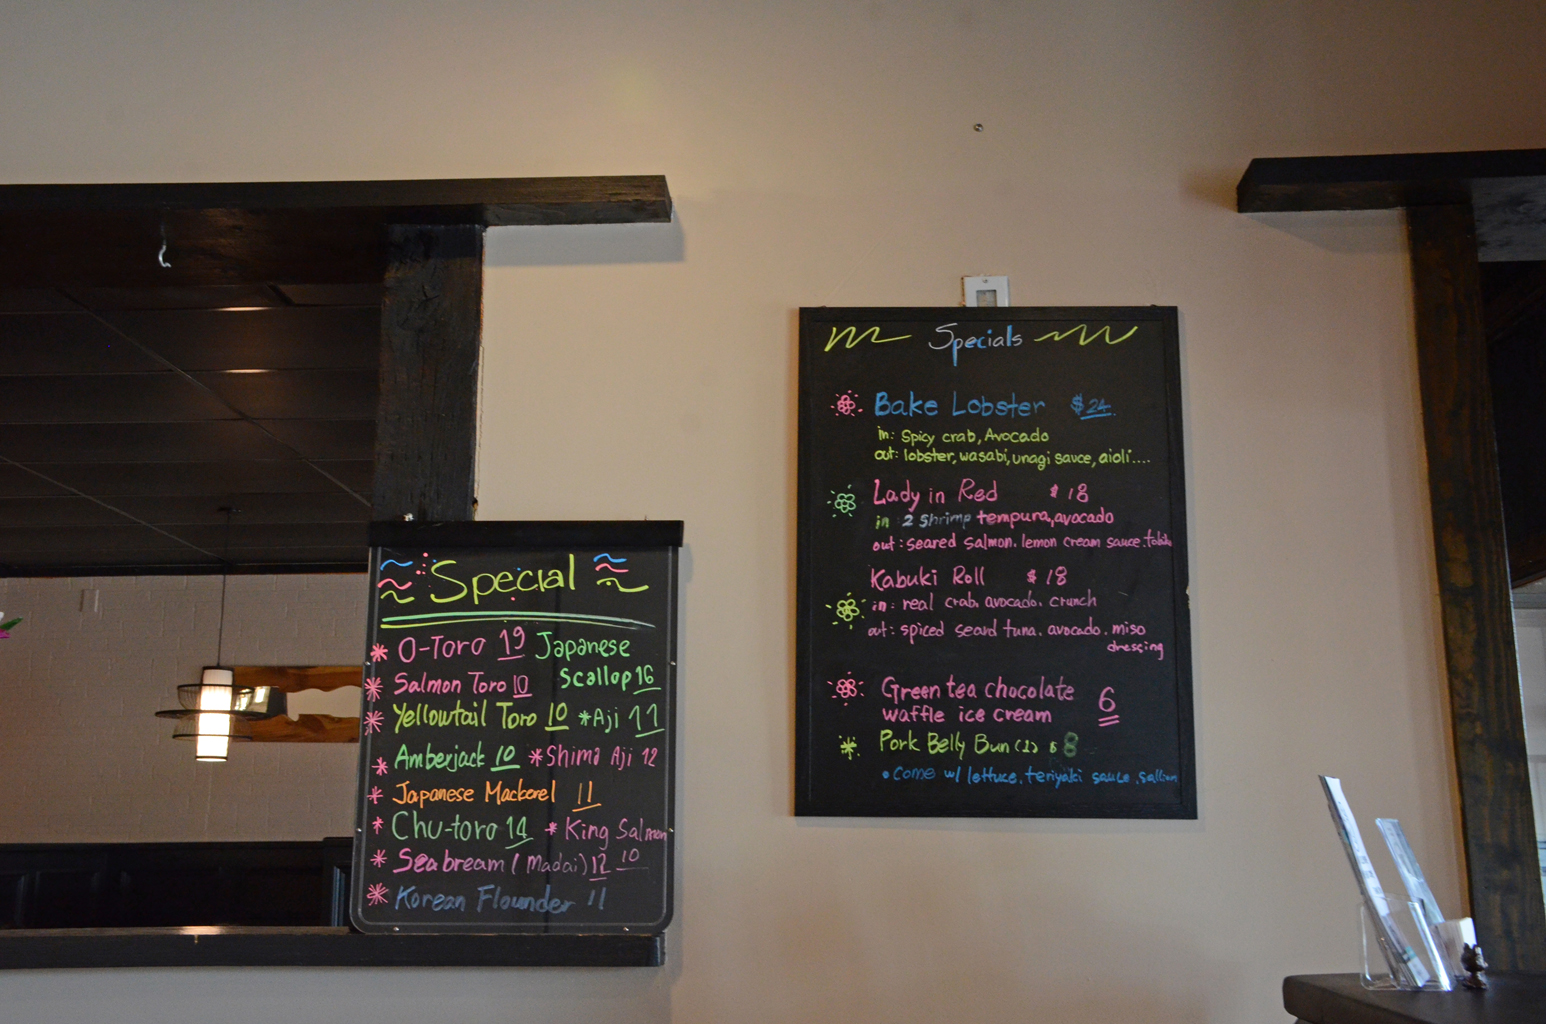 Special
O-Toro 19 Japanese
Scallop 16
Salmon Toro 10
Yellowtail Toro 10 *Aji 11
Amberjack 10 *Shima Aji 12
Japanese Mackerel 11
Chu-toro 14 *King Salmon
10
Seabream (Madai) 12
Korean Flounder 11
Specials
Bake Lobster $24
in: Spicy crab, Avocado
out: lobster, wasabi, unagi sauce, aioli....
Lady in Red $18
in 2 shrimp tempura, avocado
out: seared salmon. lemon cream sauce.
Kabuki Roll $18
in: real crab. avocado. crunch
out: spiced seard tuna. avocado. miso
dressing
Green tea chocolate
waffle ice cream 6
Pork Belly Bun (1) $8
• come w/ lettuce. teriyaki sauce.